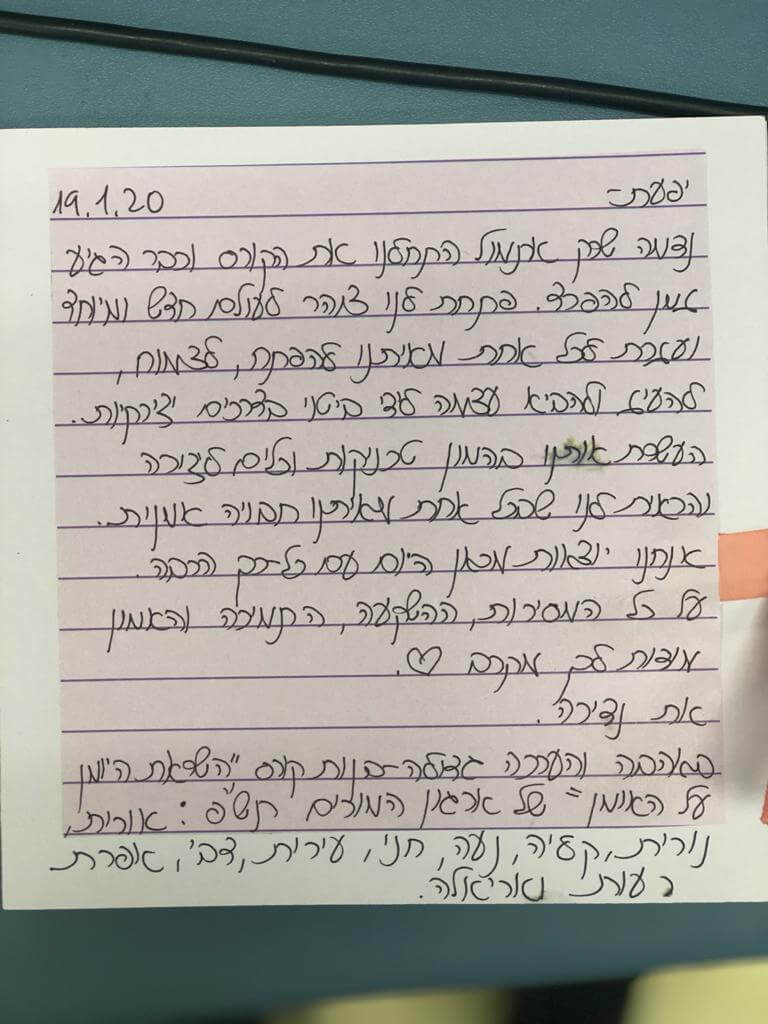 יפעת- 19.1.20
נדמה שרק אתמול התחלנו את הקורס וכבר הגיע
זמן להפרד. פתחת לנו צוהר לעולם חדש ומיוחד
ועזרת לכל אחת מאיתנו להפתח, לצמוח,
להעיז ולהביא עצמה לידי ביטוי בדרכים יצירתיות.
העשרת אותנו בהמון טכניקות וכלים ליצירה
והראית לנו שבכל אחת מאיתנו חבויה אמנית.
אנחנו יוצאות מכאן היום עם כל-כך הרבה.
על כל המסירות, ההשקעה, התמיכה והאמון
מודות לך מקרב ♡.
את נדירה.
באהבה והערכה גדולה-בנות קורס "השראת היומן
על האומן" של ארגון המורים תש"פ: אורית,
נורית, קציה, נעה, חני, עירית, דבי, אפרת
רעות ואריאלה.